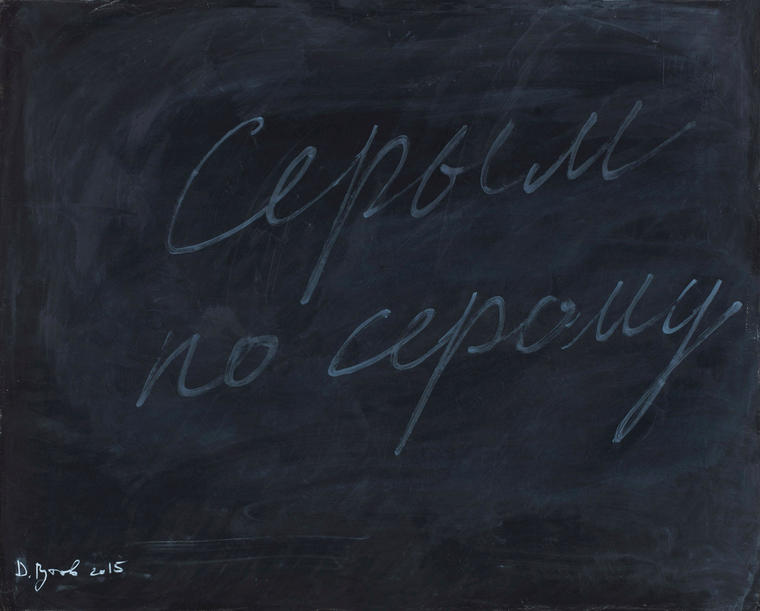 Серым
по серому
D. Врубов 2015